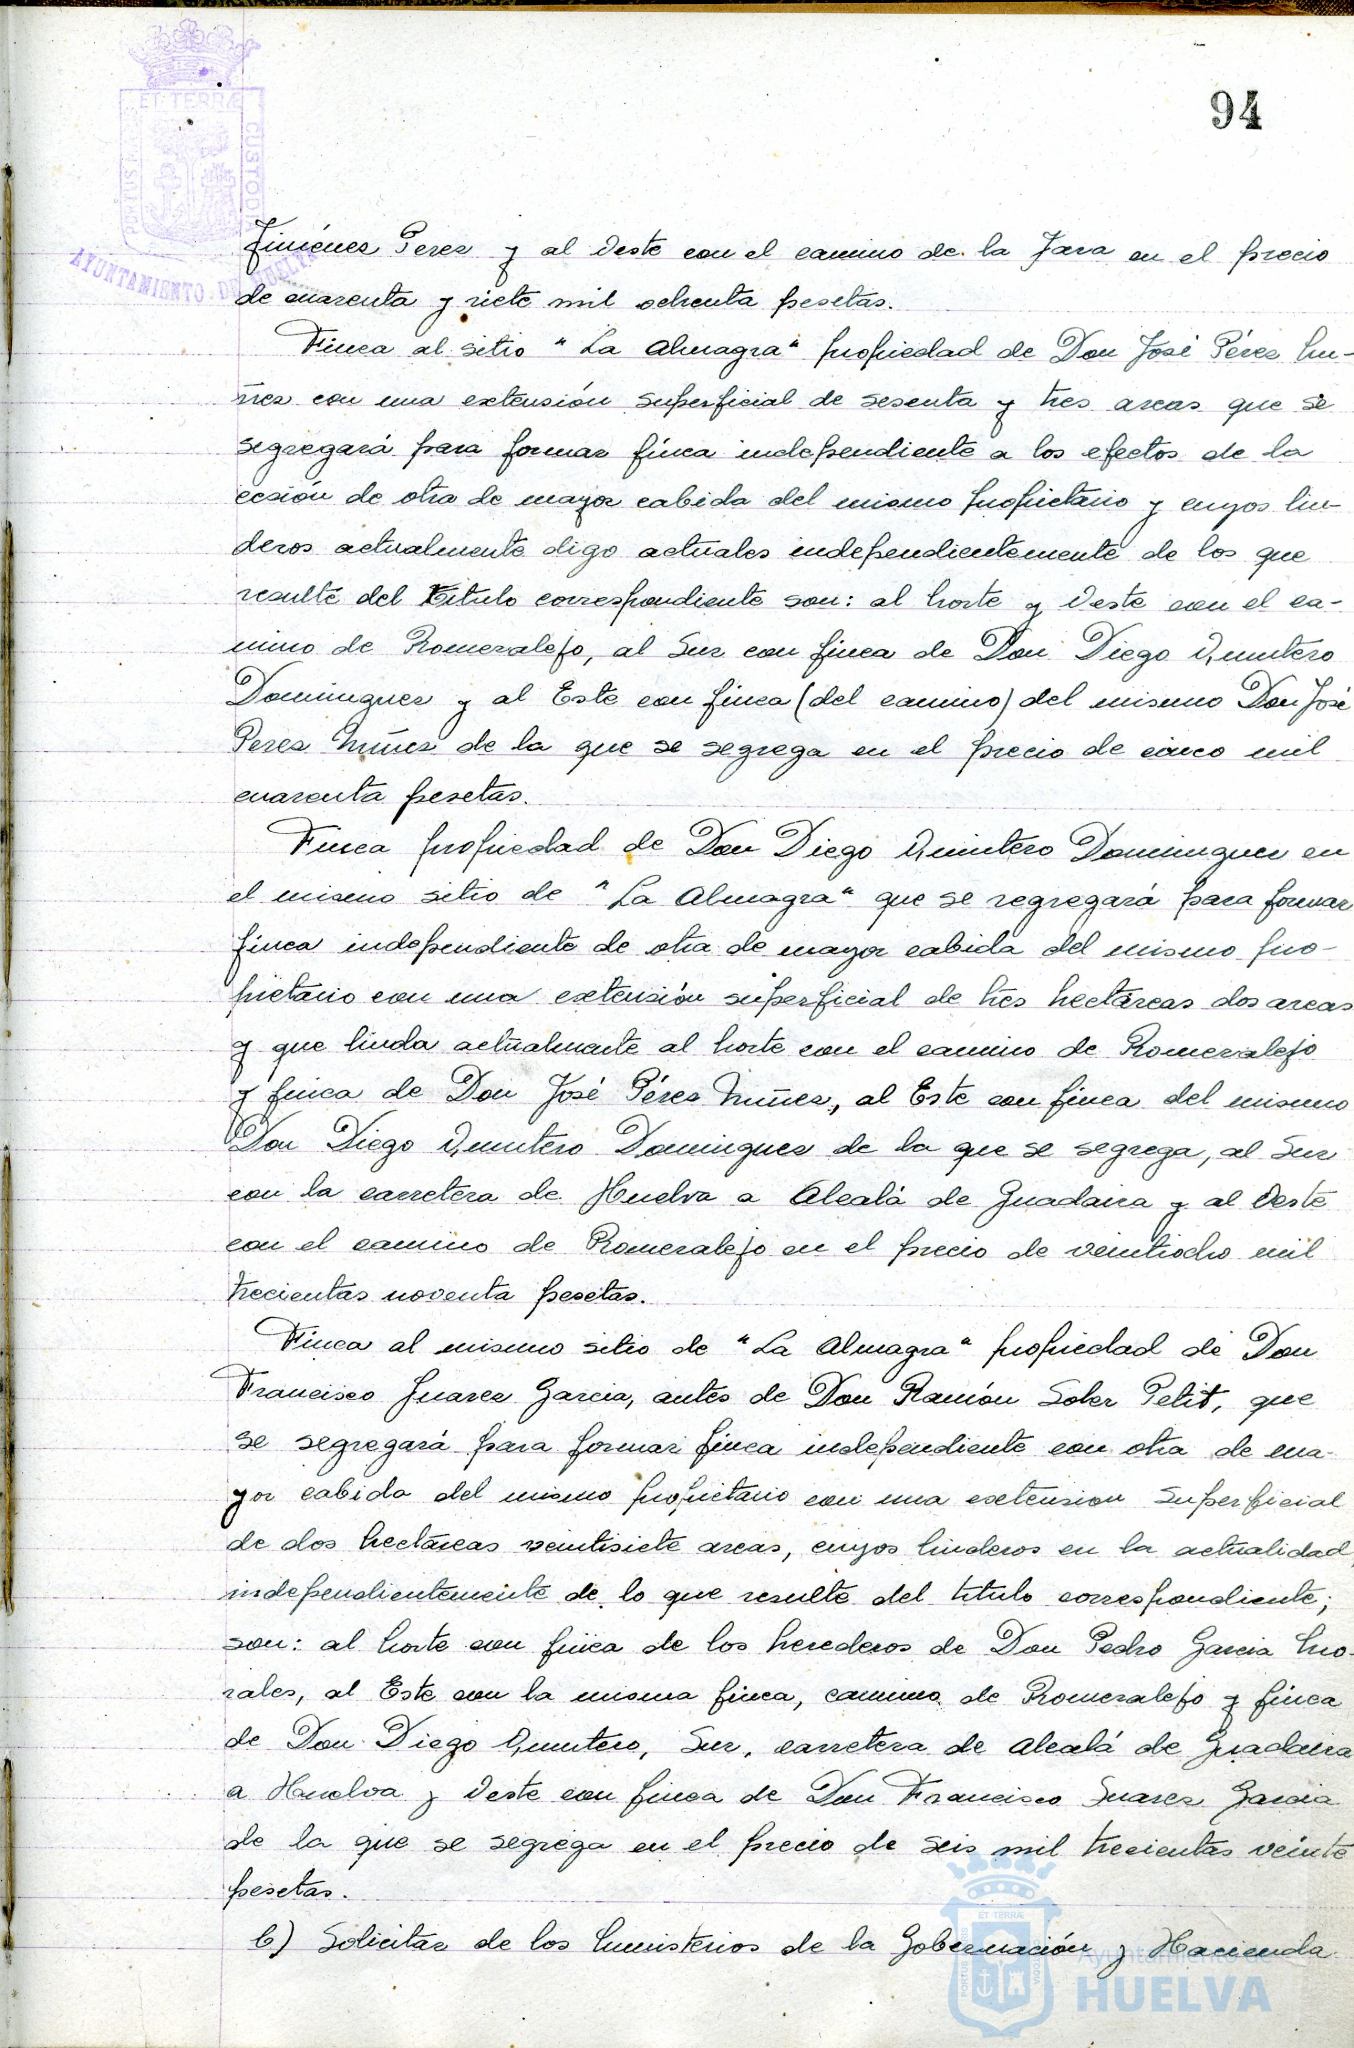 94
ET TERRÆ
CUSTODIA
AYUNTAMIENTO DE HUELVA
Jiménez Perez y al Oeste con el camino de la Jara en el precio
de cuarenta y siete mil ochenta pesetas.
Finca al sitio "La Almagra" propiedad de Don José Pérez Nu-
ñez con una extensión superficial de sesenta y tres areas que se
segregará para formar finca independiente a los efectos de la
cesión de otra de mayor cabida del mismo propietario y cuyos lin-
deros actualmente digo actuales independientemente de los que
resulte del título correspondiente son: al Norte y Oeste con el ca-
mino de Romeralejo, al Sur con finca de Don Diego Quintero
Dominguez y al Este con finca (del camino) del mismo Don José
Perez Nuñez de la que se segrega en el precio de cinco mil
cuarenta pesetas.
Finca propiedad de Don Diego Quintero Dominguez en
el mismo sitio de "La Almagra" que se segregará para formar
finca independiente de otra de mayor cabida del mismo pro-
pietario con una extensión superficial de tres hectáreas dos areas
y que linda actualmente al Norte con el camino de Romeralejo
y finca de Don José Pérez Nuñez, al Este con finca del mismo
Don Diego Quintero Dominguez de la que se segrega, al Sur
con la carretera de Huelva a Alcalá de Guadaira y al Oeste
con el camino de Romeralejo en el precio de veintiocho mil
trecientas noventa pesetas.
Finca al mismo sitio de "La Almagra" propiedad de Don
Francisco Juarez Garcia, antes de Don Ramón Soler Petit, que
se segregará para formar finca independiente con otra de ma-
yor cabida del mismo propietario con una extension superficial
de dos hectáreas veintisiete areas, cuyos linderos en la actualidad,
independientemente de lo que resulte del titulo correspondiente;
son: al Norte con finca de los herederos de Don Pedro Garcia Mo-
rales, al Este con la misma finca, camino de Romeralejo y finca
de Don Diego Quintero, Sur, carretera de Alcalá de Guadaira
a Huelva y Oeste con finca de Don Francisco Suarez Garcia
de la que se segrega en el precio de seis mil trecientas veinte
pesetas.
b) Solicitar de los Ministerios de la Gobernación y Hacienda
ET TERRÆ
Ayuntamiento de
HUELVA